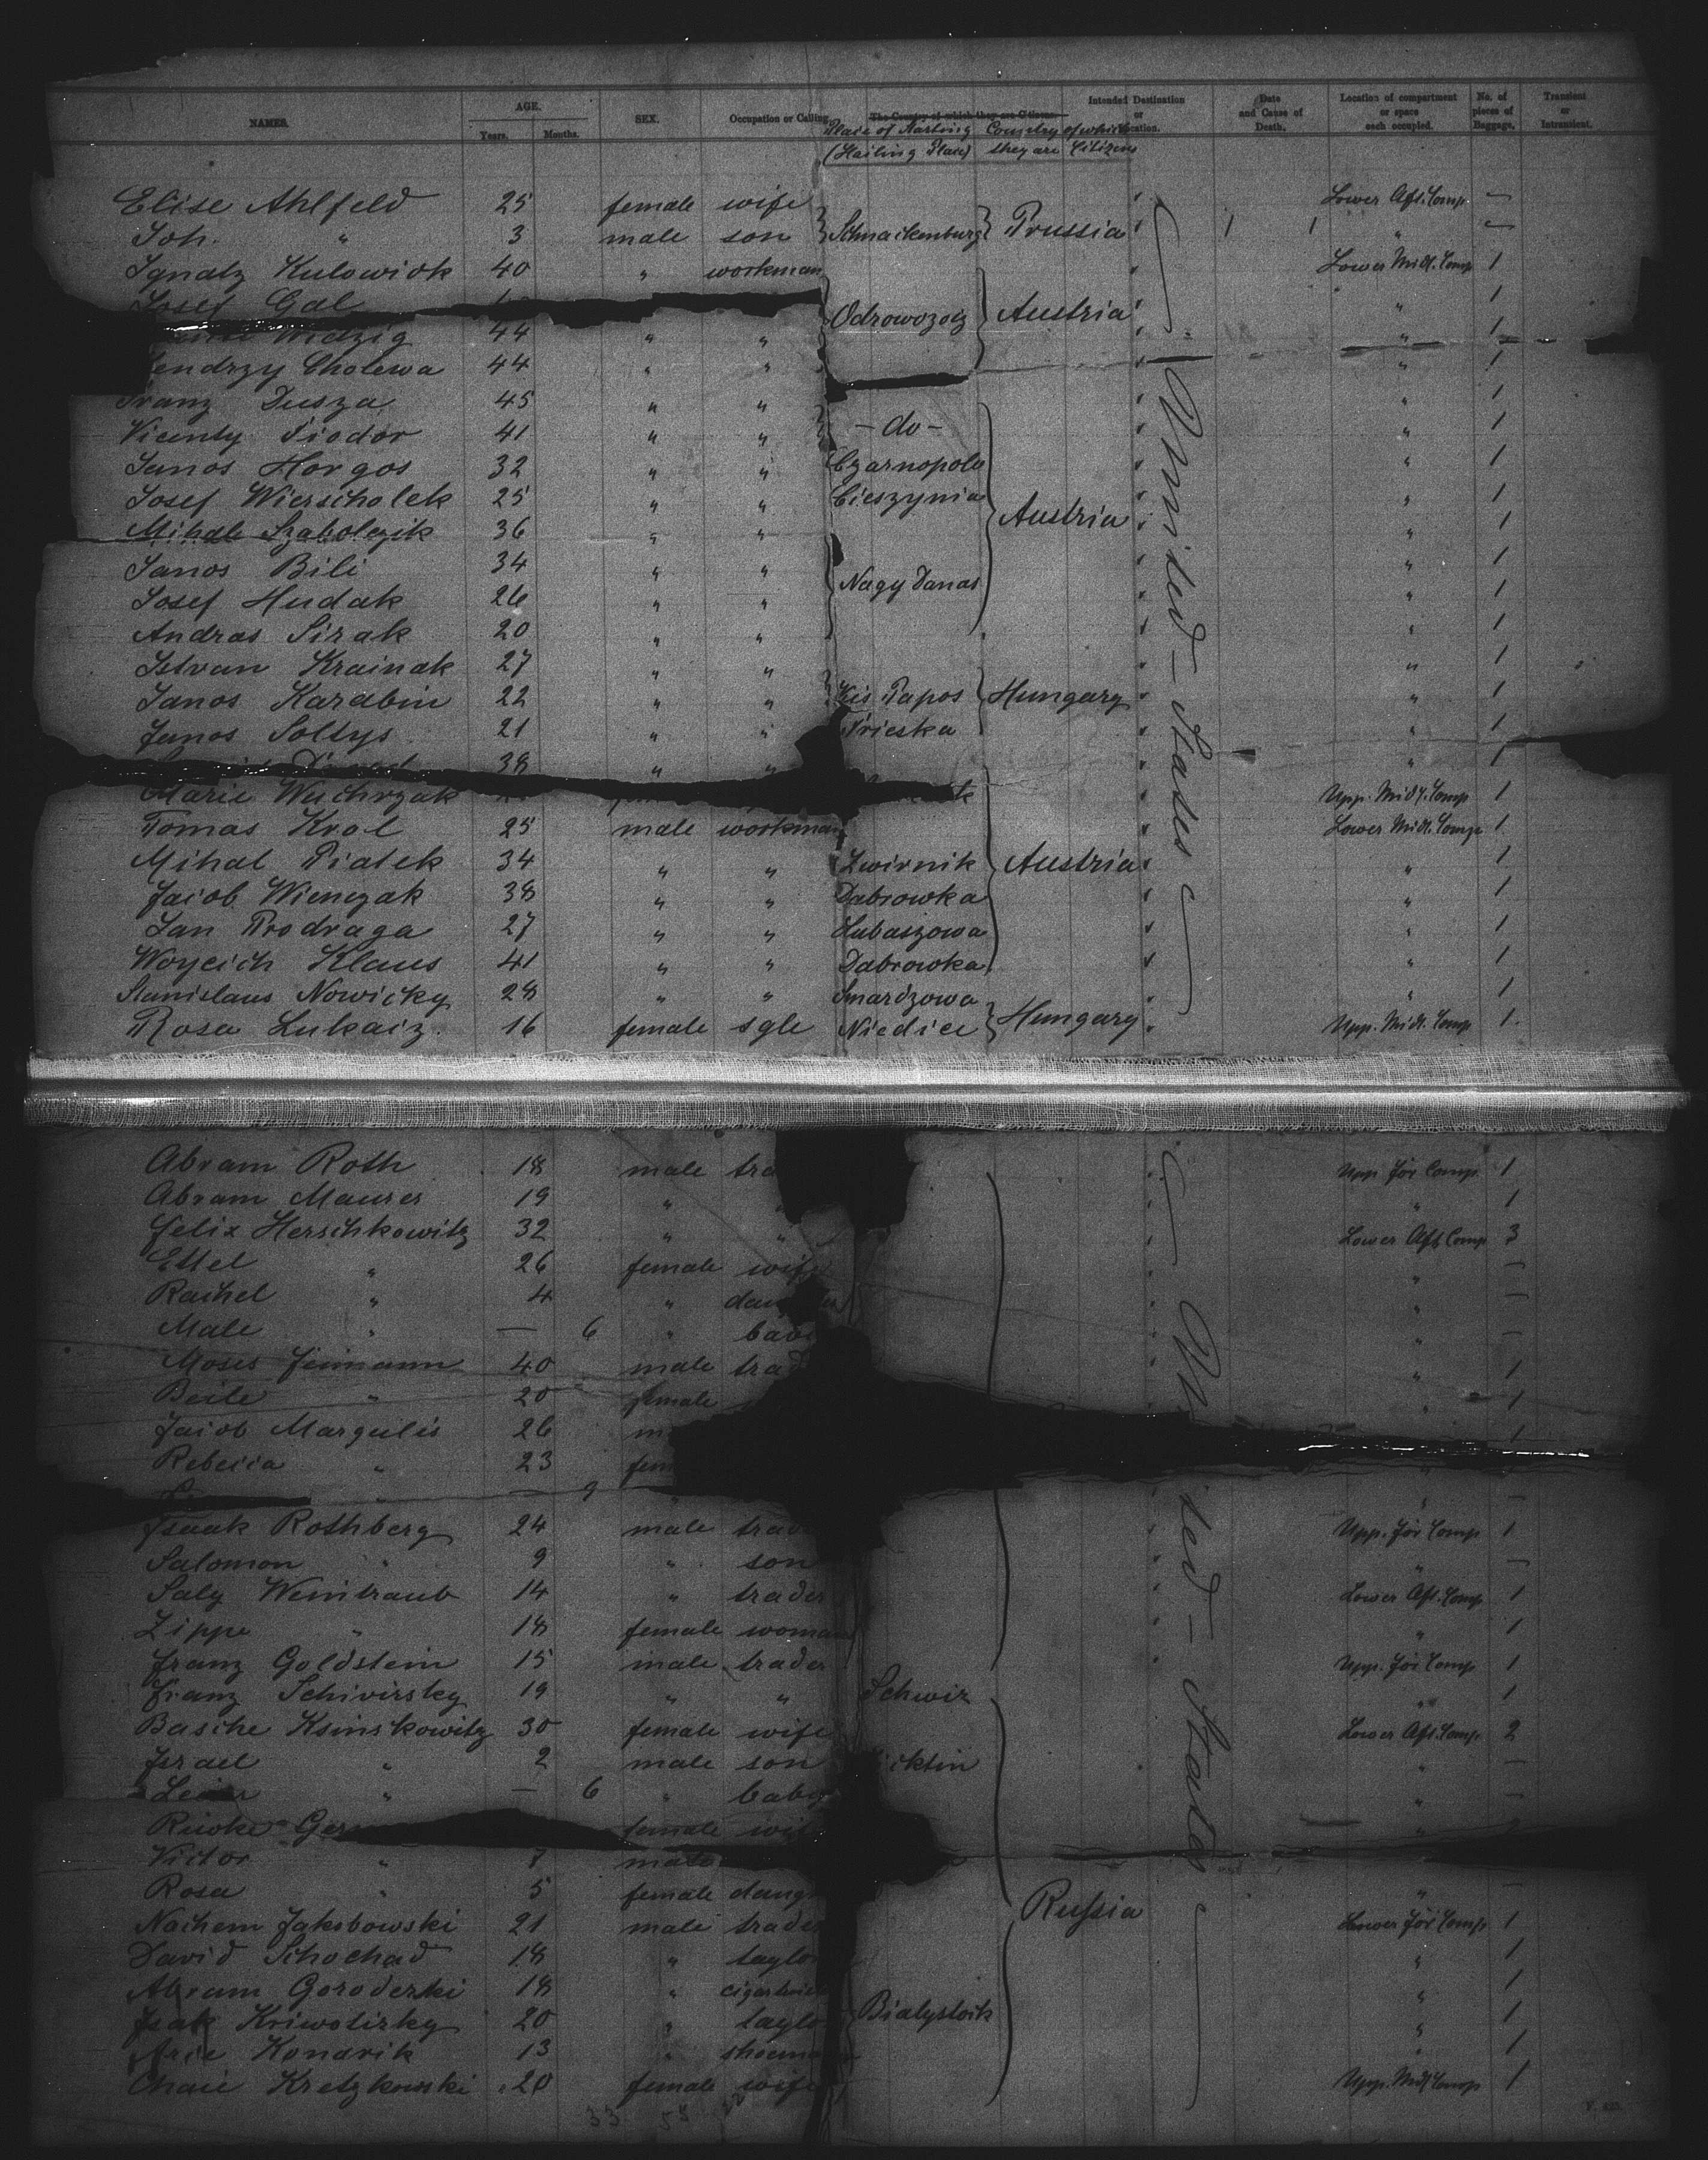 NAMES. AGE. SEX. Occupation or Calling. The Country of which they are Citizens. Intended Destination or Location. Date and Cause of Death. Location of compartment or space each occupied. No. of pieces of Baggage. Transient or Intransient.
Years. Months. Place of Starting Country of which
(Hailing Place) they are Citizens
Elise Ahlfeld 25 female wife Lower Aft. Comp. —
Joh. " 3 male son Schnackenburg Prussia 1 1 " —
Ignatz Kulowick 40 " workman Lower Midl. Comp 1
Josef Gal Odrowozog Austria " 1
44 " " " 1
Jendrzy Cholewa 44 " " " 1
Franz Dusza 45 " " " 1
Vicenty Fiodor 41 " " — do — " 1
Janos Horgos 32 " " Czarnopole " 1
Josef Wierscholek 25 " " Cieszynia " 1
Mihale Szabolczik 36 " " Austria " 1
Janos Bili 34 " " Nagy Danas " 1
Josef Hudak 26 " " " 1
Andras Sirak 20 " " " 1
Istvan Krainak 27 " " " 1
Janos Karabin 22 " " Kis Tapos Hungary " 1
Janos Soltys 21 " " Frieska " 1
38 " " " 1
Marie Wuchrzak Upp. Midl. Comp 1
Tomas Krol 25 male workman Lower Midl. Comp 1
Mihal Piatek 34 " " Zwirnik Austria " 1
Jacob Wienczak 38 " " Dabrowka " 1
Jan Prodraga 27 " " Lubaszowa " 1
Woyciech Klaus 41 " " Dabrowka " 1
Stanislaus Nowicky 28 " " Smardzowa " 1
Rosa Lukaicz. 16 female sgle Niedice Hungary Upp. Midl. Comp 1
United — States
Abram Roth 18 male tra Upp. For. Comp 1
Abram Maurer 19 " " 1
Felix Herschkowitz 32 " " Lower Aft Comp 3
Ettel " 26 female wife " —
Rachel " 4 " " —
Male " — 6 " " —
Moses Feinmann 40 male trad " 1
Beile " 20 female " 1
Jacob Margulis 26 1
Rebecca " 23 fem "
" — 9 " " —
Isaak Rothberg 24 male trad Upp. For. Comp 1
Salomon " 9 " son " —
Saly Weintraub 14 " trader Lower Aft. Comp 1
Zippe " 18 female woman " 1
Franz Goldstein 15 male trader Upp. For. Comp 1
Franz Schivirsky 19 " " Schwir " 1
Basche Ksinskowitz 30 female wife Lower Aft. Comp. 2
Israel " 2 male son icktin " —
" — 6 " baby " —
Riwke Ger female wife "
Victor " 7 male
Rosa " 5 female daugh Russia " —
Nachem Jakobowski 21 male trader Lower For. Comp 1
David Schochad 18 " taylor " 1
Abram Goroderski 18 " " 1
Isak Kriwolizky 20 " taylo Bialystock " 1
Arie Konarik 13 " shoem " 1
Chaie Kretzkowski 20 female wife Upp. Midl Comp 1
ted — States
33 55